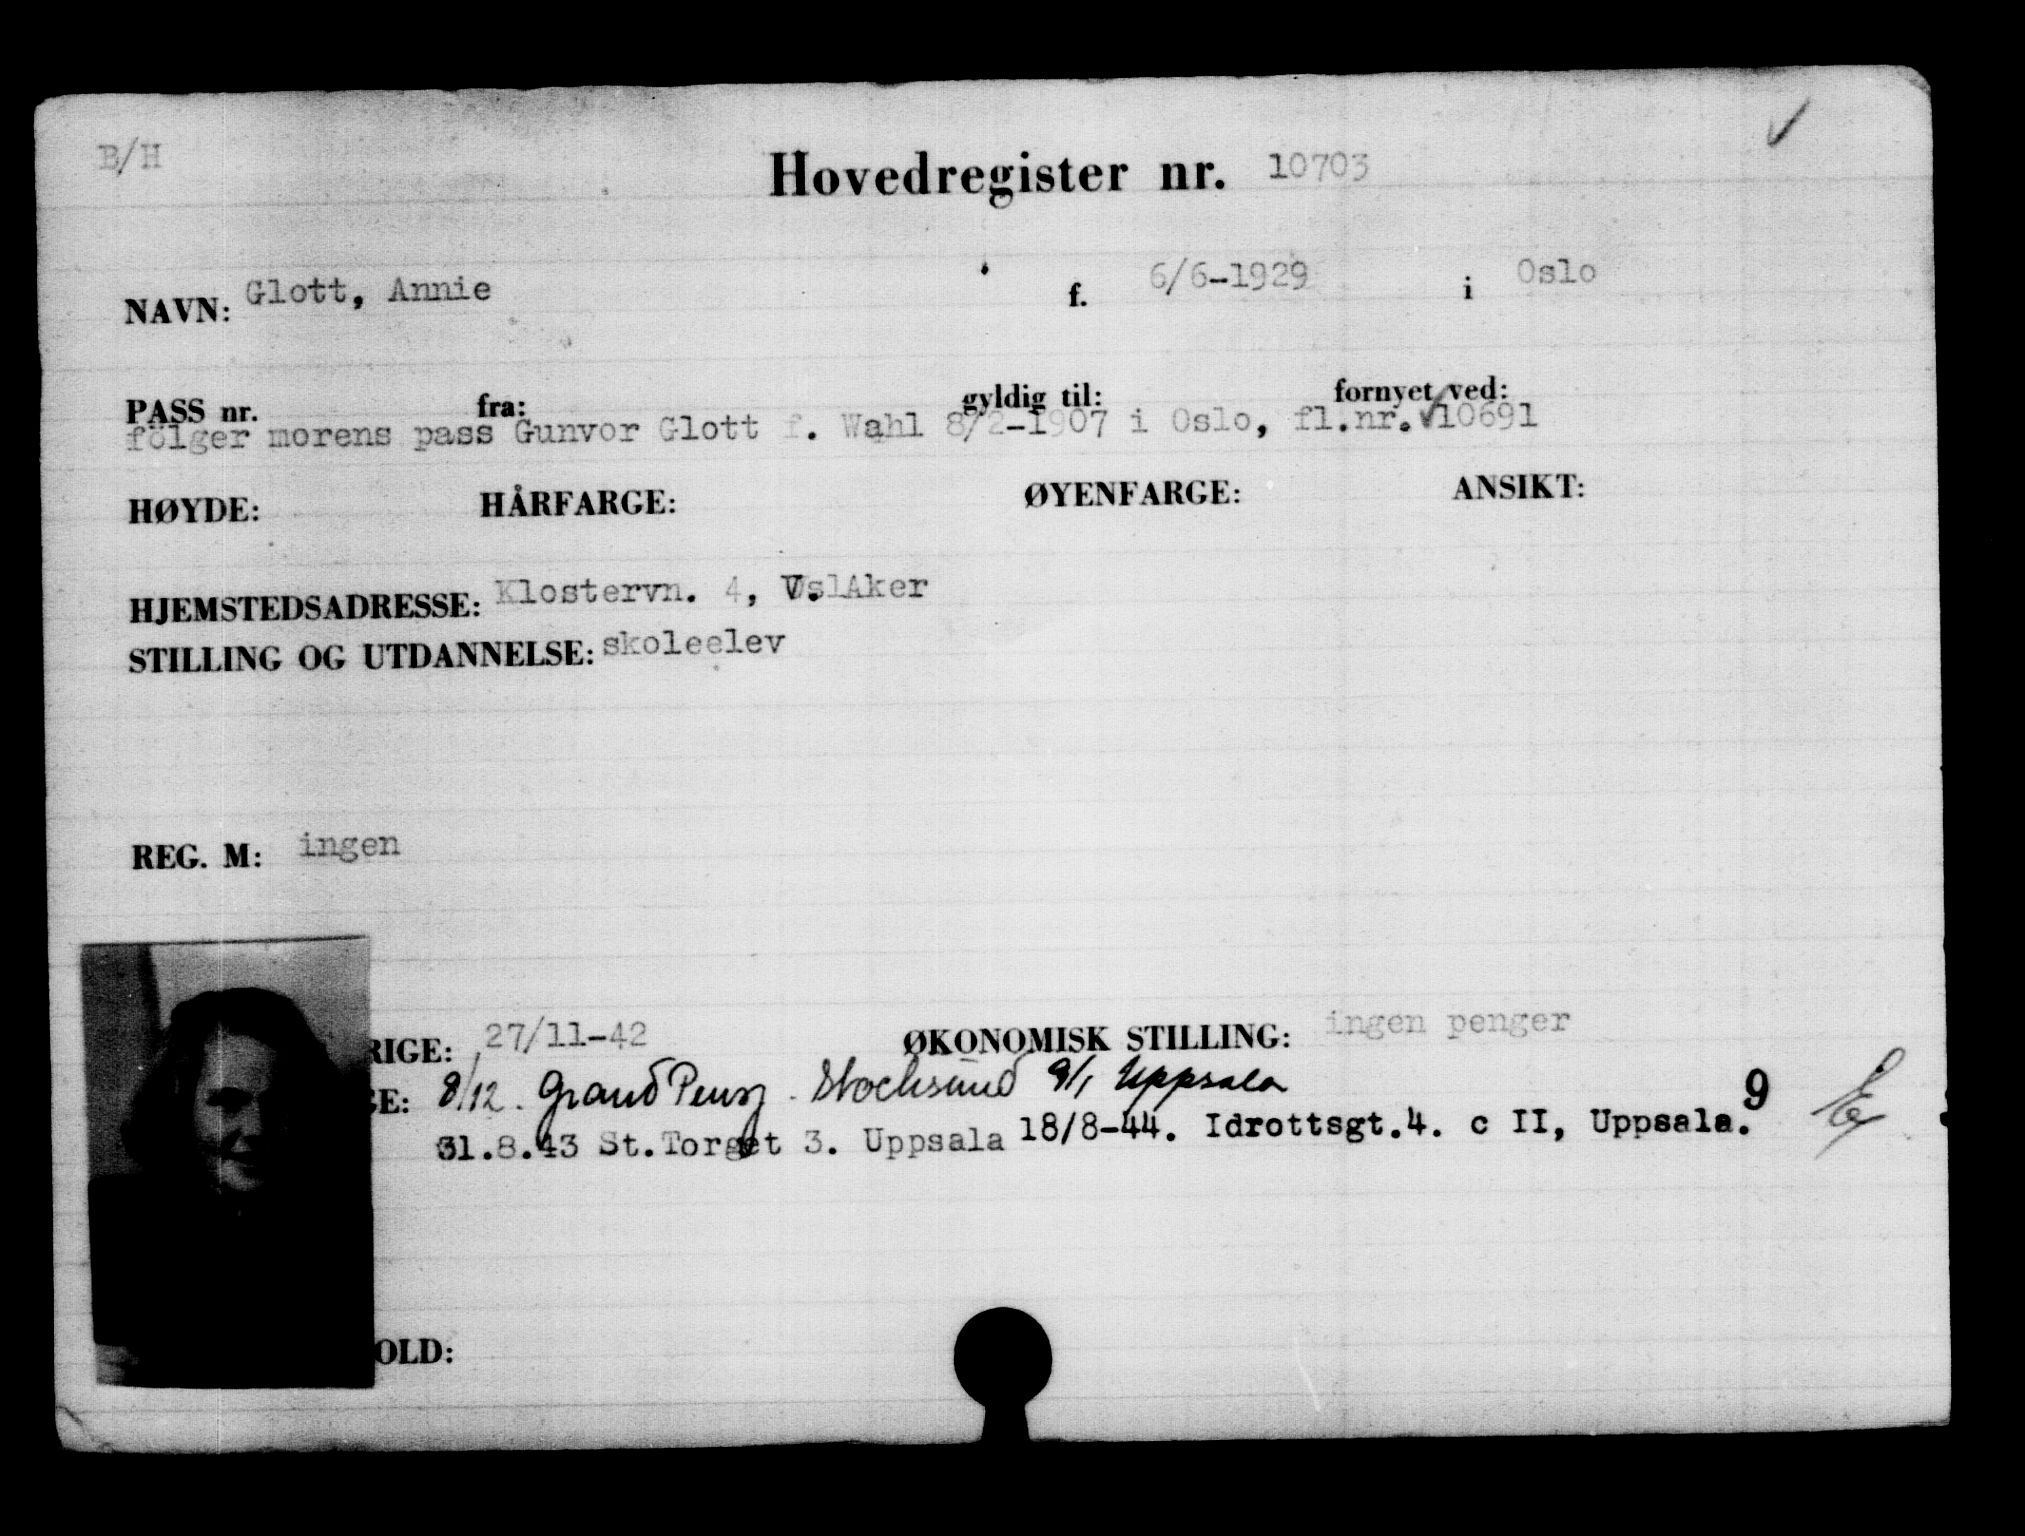 B/H
Hovedregister nr. 10703
NAVN: Glott, Annie f. 6/6-1929 i Oslo
PASS nr. fra: gyldig til: fornyet ved:
fölger morens pass Gunvor Glott f. Wahl 8/2-1907 i Oslo, fl.nr. 10691
HØYDE: HÅRFARGE: ØYENFARGE: ANSIKT:
HJEMSTEDSADRESSE: Klostervn. 4, V. Aker
STILLING OG UTDANNELSE: skoleelev
REG. M: ingen
RIGE: 27/11-42 ØKONOMISK STILLING: ingen penger
GE: 8/12. Grand Pensj. Stocksund 9/1 Uppsala 9
31.8.43 St.Torget 3. Uppsala 18/8-44. Idrottsgt.4. c II, Uppsala.
OLD: